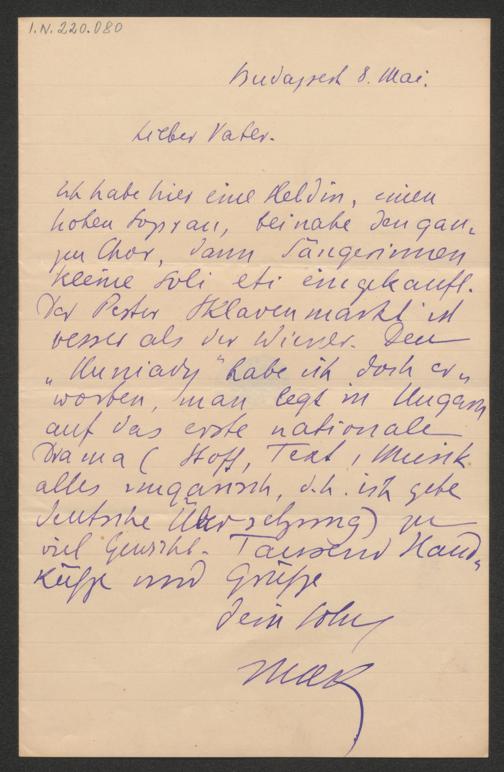 I.N. 220.080
Budapest 8. Mai.
Lieber Vater.
Ich habe hier eine Heldin, einen
hohen Sopran, beinahe den gan-
zen Chor, dann Sängerinnen
kleine Soli etc eingekauft.
Der Pester Sklavenmarkt ist
besser als der Wiener. Den
„Huniady" habe ich doch er-
worben, man legt in Ungarn
auf das erste nationale
Drama (Stoff, Text, Musik
alles ungarisch, d.h. ich gebe
deutsche Übersetzung) zu
viel Gewicht. Tausend Hand-
küsse und Grüsse
Dein Sohn
Max